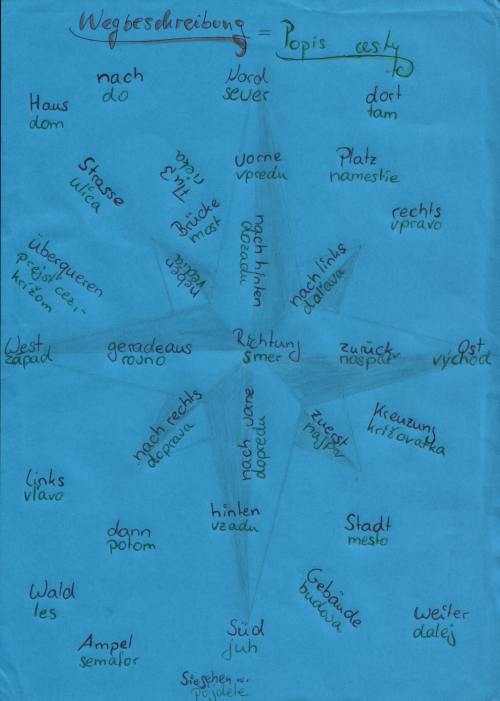 Wegbeschreibung = Popis cesty
nach
do
Nord
sever
dort
tam
Haus
dom
Strasse
ulica
Fluß
rieka
Brücke
most
vorne
vpredu
Platz
namestie
rechts
vpravo
Überqueren
prejsť cez,-
križom
neben
vedľa
nach hinten
dozadu
nach links
doľava
West
západ
geradeaus
rovno
Richtung
smer
zurück
naspäť
Ost
východ
nach rechts
doprava
nach vorne
dopredu
zuerst
najprv
Kreuzung
križovatka
links
vľavo
dann
potom
hinten
vzadu
Stadt
mesto
Wald
les
Gebäude
budova
weiter
ďalej
Ampel
semafor
Süd
juh
Sie gehen ...
pôjdete